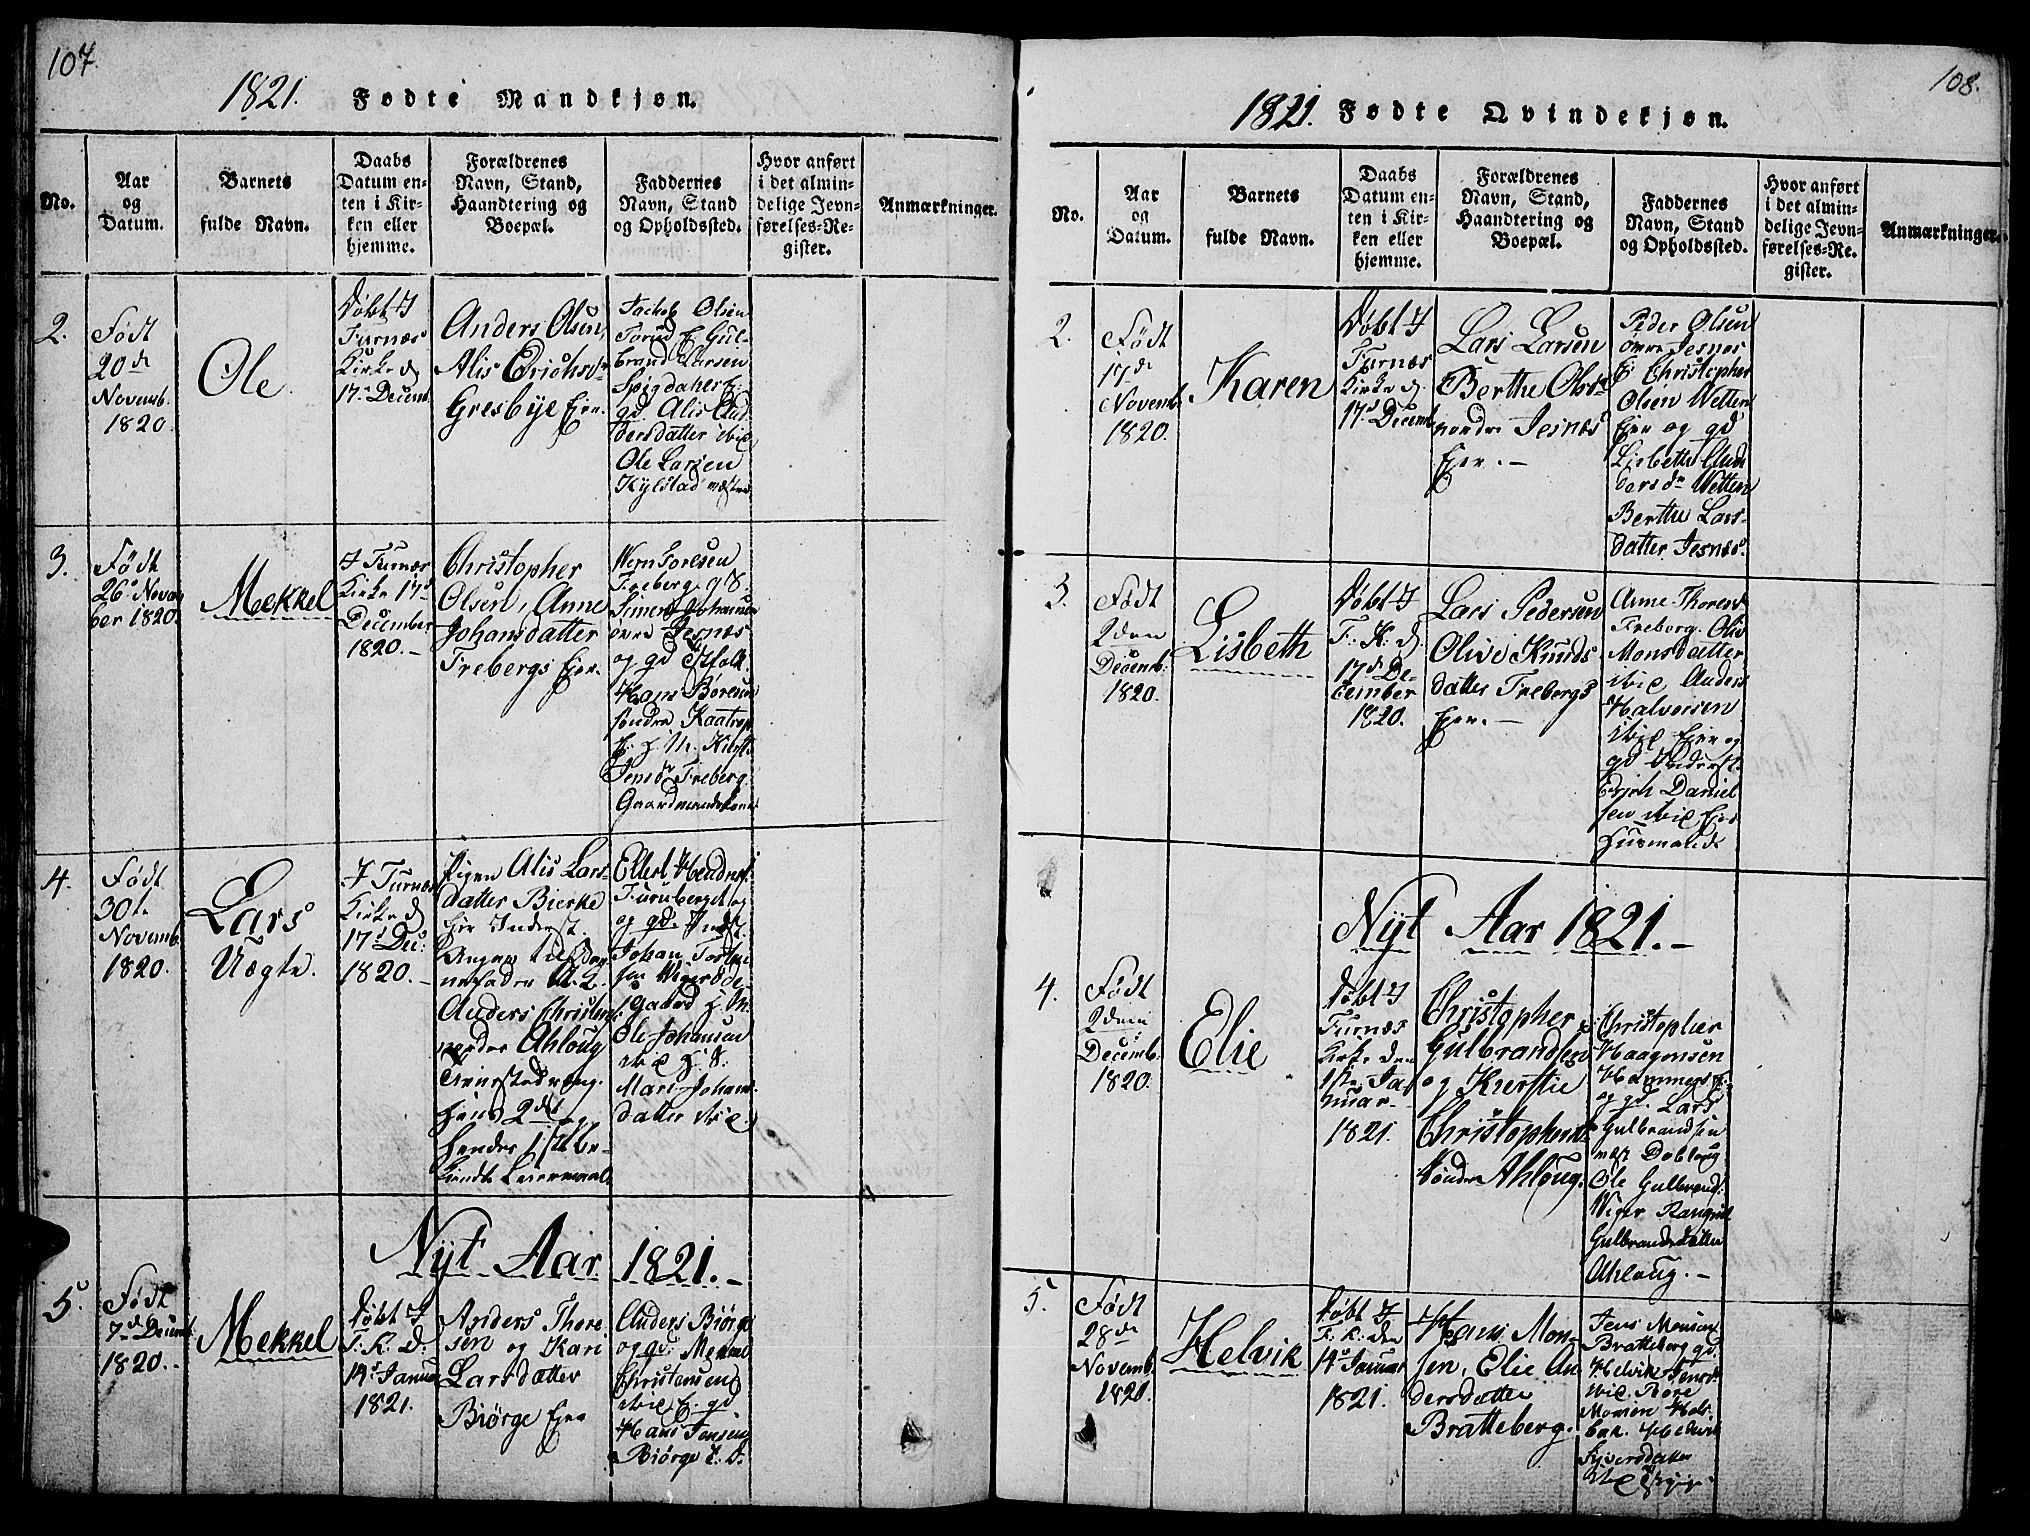 107.
1821. Fødte Mandkjøn.
No.
Aar
og
Datum.
Barnets
fulde Navn.
Daabs
Datum en-
ten i Kir-
ken eller
hjemme.
Forældrenes
Navn, Stand,
Haandtering og
Boepæl.
Faddernes
Navn, Stand
og Opholdssted.
Hvor anført
i det almin-
delige Jevn-
førelses-Re-
gister.
Anmærkninger.
2.
Født
20de
Novemb.
1820.
Ole.
Døbt I
Furnæs
Kirke d
17. Decemb.
Anders Olsen,
Alis Erichsd.
Gresbye Eier.
Jackob Olsen
Torud E. Gul-
brand Larsen
gd Alis An-
dersdatter ibid
Ole Larsen
Kylstad
3.
Født
26. Novem
ber 1820.
Mekkel
I Furnæs
Kirke 17de
December
1820.-
Christopher
Olsen, Anne
Johansdatter
Frebergs Eier.
Freberg. g
Simen Johannsen
øvre Jesnæs
og gd
Hans Børesen
søndre Kaatrop
Freberg.
4.
Født
30te
Novemb.
1820.
Lars
Uægte.
I Furnæs
Kirke d
17de Dec:
1820.-
Pigen Alis Lars-
datter Bierke
Eier Inderst.
Anders Christens.
nordre Ahloug
Hans 2det og
hendes 1ste be-
kiendte Leiermaal.
Ellert Hendriks.
Furuberget og
og gd. Indst.
Johan
Ole Johansen
ibid
Mari Johans-
datter ibid.
Nyt Aar 1821.-
5.
Født
7de Decemb.
1820.
Mekkel
Døbt I
F. K. D.
14de Januar
1821.
Anders Thore
sen og Kari
Larsdatter
Biørge Eier
Anders Biørge
og gd Mekkel
Christensen
ibid E. gd
Hans Jensen
Biørge E. D.
108.
1821. Fødte Qvindekjøn.
No.
Aar
og
Datum.
Barnets
fulde Navn.
Daabs
Datum en-
ten i Kir-
ken eller
hjemme.
Forældrenes
Navn, Stand,
Haandtering og
Boepæl.
Faddernes
Navn, Stand
og Opholdssted.
Hvor anført
i det almin-
delige Jevn-
førelses-Re-
gister.
Anmærkninger.
2.
Født
17de
Novemb.
1820.
Karen
Døbt I
Furnæs
Kirke d.
17de Decemb.
Lars Larsen
Berthe Olsd.
nordre Jesnæs
Eier.-
Peder Olsen
øvre Jesnæs
E. Christopher
Olsen Wetten
Eier og gd
Lisbethe Ande
dersdr Wetten
Berthe Lars-
datter Jesnæs.
3.
Født
2den
Decemb.
1820.
Lisbeth
Døbt I
F. K. d
17de De-
cember
1820.
Lars Pedersen
Olive Knuds
datter Frebergs
Eier.-
Anne Thorens
Freborg. Oliv
Monsdatter
ibid, Anders
Halvorsen
ibid Eier og
gd Inderst.
Erich Daniel
sen ibid Eier
Husmand.
Nyt Aar 1821.-
4.
Født
2den
Decemb.
1820.
Elie
Døbt I
Furnæs
Kirke den
1ste Ja-
nuar-
1821.
Christopher
Gulbrandsen
og Kierstie
Christophersd.
søndre Ahloug.
Christopher
Haagensen
Hammers E.
og gd. Lars
Gulbrandsen
Dobloug
Ole Gulbrands.
Gulbrandsdatter
Ahloug.-
5.
Født
28de
Novemb.
1820.
Helvik
Døbt I
F. K. den
14de Januar
1821.
Hans Mon-
sen, Elie An
dersdatter
Bratteberg.
Jens Monsen
Bratteberg gd
Helvik Jensd.
ibid. Bore
Monsen
Helvik
Syversdatter